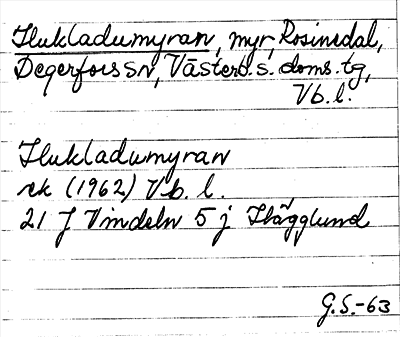 Hukladumyran, myr, Rosinedal,
Degerfors sn, Västerb. s. doms. tg,
Vb. l.
Hukladumyran
rek (1962) Vb. l.
21 J Vindeln 5 j Hägglund
G.S.-63